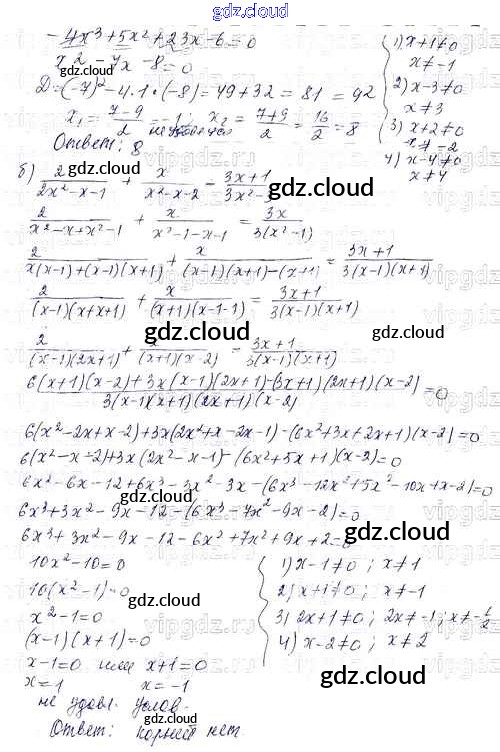 gdz.cloud
-4x³+5x²+23x-6=0
x²-7x-8=0
D=(-7)²-4.1.(-8)=49+32=81=9²
x₁=(7-9)/2=-1; x₂=(7+9)/2=16/2=8
Ответ: 8
1) x+1≠0
x≠-1
2) x-3≠0
x≠3
3) x+2≠0
x≠-2
4) x-4≠0
x≠4
б) 2/(2x²-x-1) + x/(x²-x-2) = (3x+1)/(3x²-
gdz.cloud
2/(x²-x+x²-1) + x/(x²-1-x-1) = 3x/(3(x²-1))
gdz.cloud
2/(x(x-1)+(x-1)(x+1)) + x/((x-1)(x+1)-(x+1)) = (3x+1)/(3(x-1)(x+1))
2/((x-1)(x+x+1)) + x/((x+1)(x-1-1)) = (3x+1)/(3(x-1)(x+1))
gdz.cloud
gdz.cloud
2/((x-1)(2x+1)) + x/((x+1)(x-2)) = (3x+1)/(3(x-1)(x+1))
(6(x+1)(x-2)+3x(x-1)(2x+1)-(3x+1)(2x+1)(x-2))/(3(x-1)(x+1)(2x+1)(x-2))=0
6(x²-2x+x-2)+3x(2x²+x-2x-1)-(6x²+3x+2x+1)(x-2)=0
6(x²-x-2)+3x(2x²-x-1)-(6x²+5x+1)(x-2)=0
gdz.cloud
6x²-6x-12+6x³-3x²-3x-(6x³-12x²+5x²-10x+x-2)=0
6x³+3x²-9x-12-(6x³-7x²-9x-2)=0
gdz.cloud
6x³+3x²-9x-12-6x³+7x²+9x+2=0
gdz.cloud
10x²-10=0
10(x²-1)=0
gdz.cloud
x²-1=0
(x-1)(x+1)=0
x-1=0 или x+1=0
x=1 x=-1
не удовл. услов.
Ответ: корней нет.
1) x-1≠0; x≠1
2) x+1≠0; x≠-1
3) 2x+1≠0; 2x≠-1; x≠-1/2
4) x-2≠0; x≠2
gdz.cloud
gdz.cloud